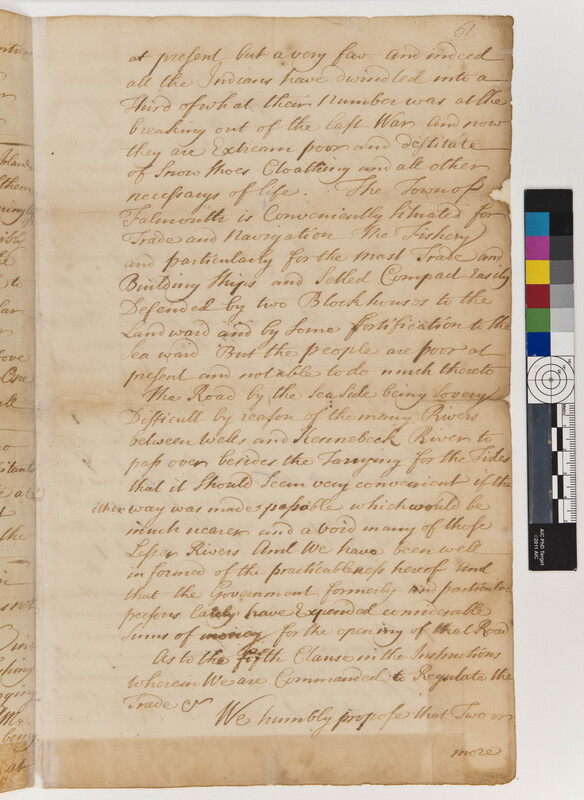 61
at present but a very few and indeed
all the Indians have dwindled into a
Third of what their Number was at the
breaking out of the last War and now
they are Extream poor and destitute
of Snow Shoes Cloathing and all other
necessarys of life. The Town of
Falmouth is Conveniently Situated for
Trade and Navigation the Fishery
and particularly for the Mast Trade and
Building Ships and Setled Compact Easily
Defended by two Blockhouses to the
Landward and by Some fortification to the
Sea ward But the people are poor at
present and not able to do much thereto
The Road by the Sea Side being So very
Difficult by reason of the many Rivers
between Wells and Kennebeck River to
pass over besides the Tarrying for the Tides
that it Should Seem very convenient if the
other way was made passable which would be
much nearer and avoid many of those
Lesser Rivers And We have been well
informed of the practicableness hereof and
that the Government formerly and particular
persons lately have Expended considerable
Sums of money for the opening of that Road
As to the fifth Clause in the Instructions
wherein We are Commanded to Regulate the
Trade &c
We humbly propose that Two or
more